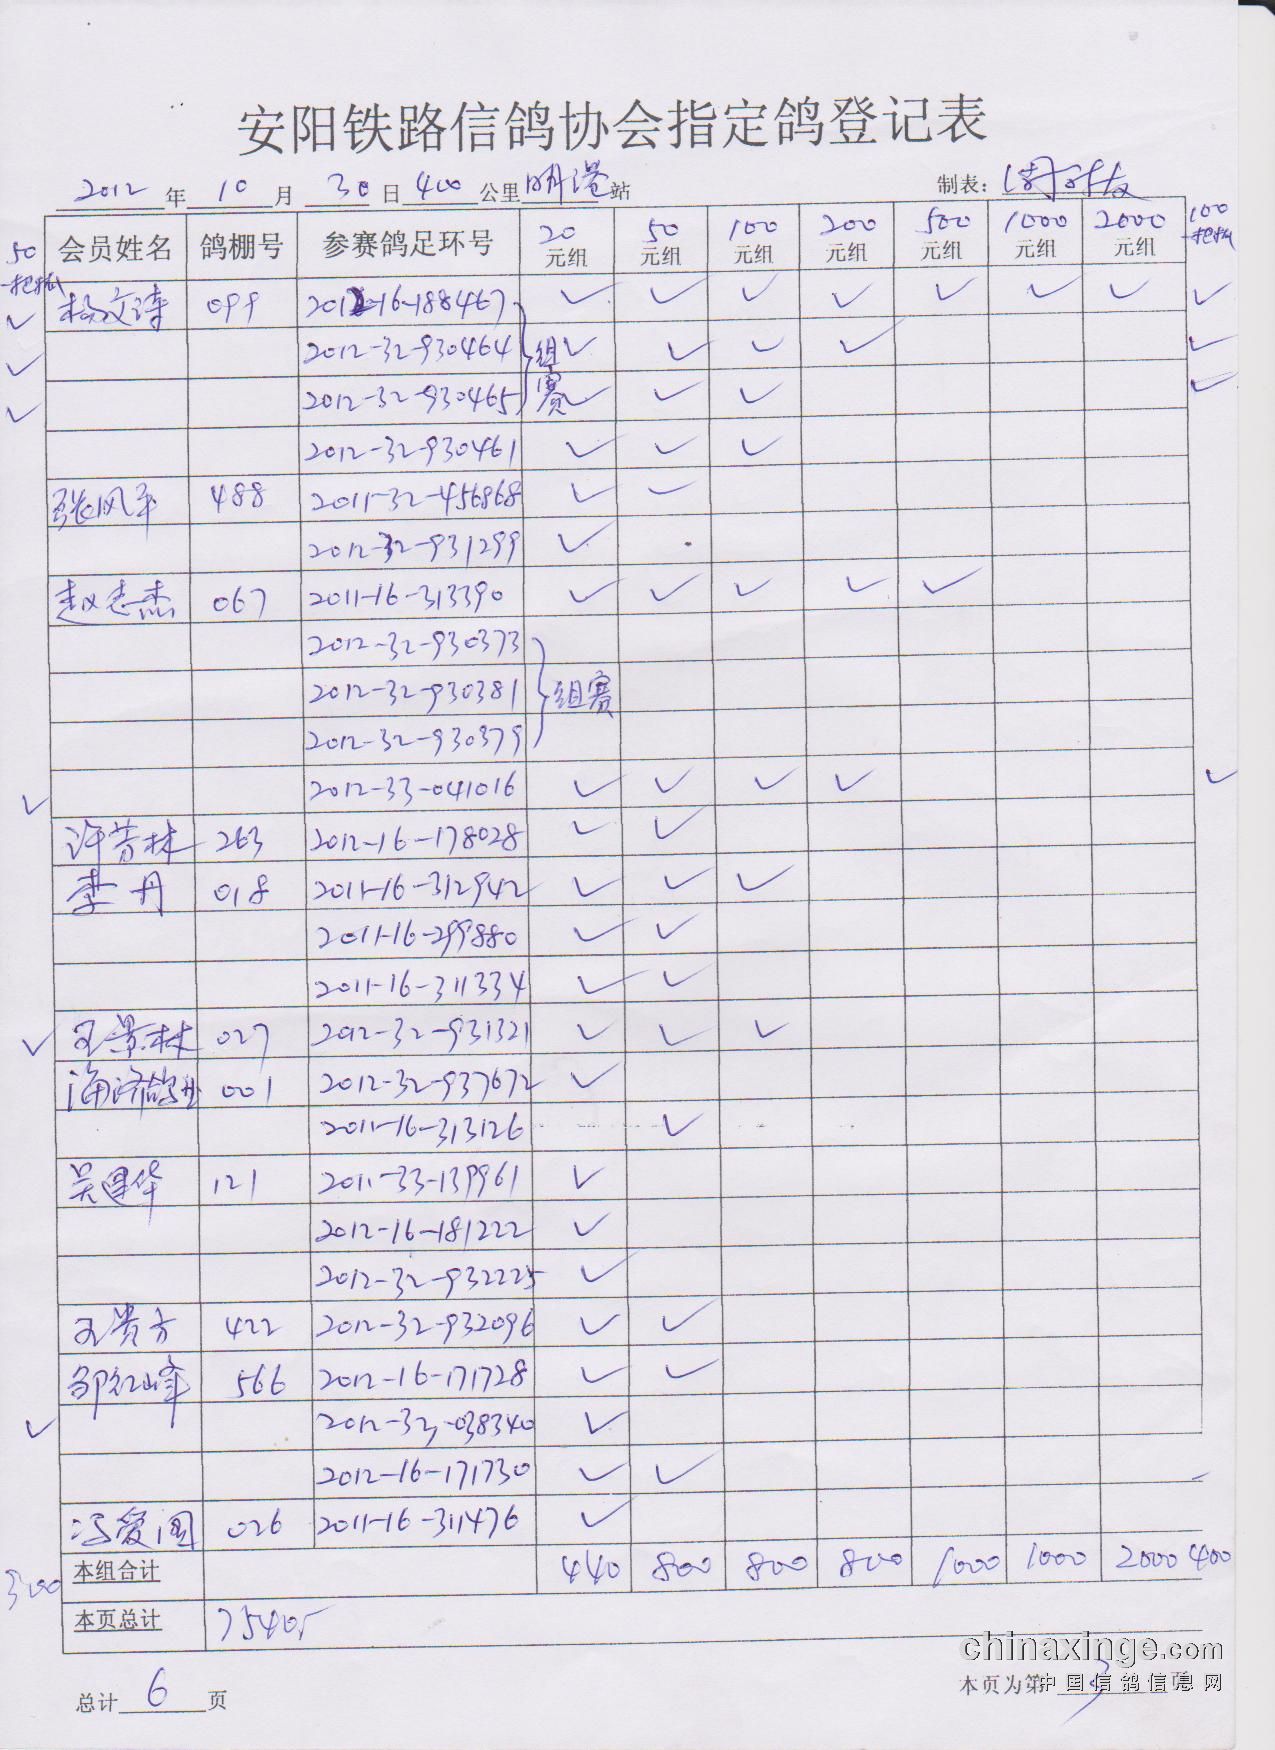 安阳铁路信鸽协会指定鸽登记表
2012 年 10 月 30 日 400 公里 明港 站 制表:
50 一把抓 会员姓名 鸽棚号 参赛鸽足环号 20元组 50元组 100元组 200元组 500元组 1000元组 2000元组 100 一把抓
✓ 杨文涛 099 2012-16-188467 ✓ ✓ ✓ ✓ ✓ ✓ ✓ ✓
✓ 2012-32-930464 组 ✓ ✓ ✓ ✓ ✓
✓ 2012-32-930465 赛 ✓ ✓ ✓ ✓
2012-32-930461 ✓ ✓ ✓
张风平 488 2011-32-456868 ✓ ✓
2012-32-931299 ✓
赵志杰 067 2011-16-313390 ✓ ✓ ✓ ✓ ✓
2012-32-930373
2012-32-930381 组赛
2012-32-930379
✓ 2012-33-041016 ✓ ✓ ✓ ✓ ✓
许芳林 263 2012-16-178028 ✓ ✓
李丹 018 2011-16-312942 ✓ ✓ ✓
2011-16-299880 ✓ ✓
2011-16-311334 ✓ ✓
✓ 王景林 027 2012-32-931321 ✓ ✓ ✓
001 2012-32-937672 ✓
2011-16-313126 ✓
吴建华 121 2011-33-139961 ✓
2012-16-181222 ✓
2012-32-932225 ✓
王贵方 422 2012-32-932096 ✓ ✓
邹红峰 566 2012-16-171728 ✓ ✓
✓ 2012-32-038340 ✓
2012-16-171730 ✓ ✓
冯爱国 026 2011-16-311476 ✓
300 本组合计 440 800 800 800 1000 1000 2000 400
本页总计 7540
chinaxinge.com
总计 6 页 本页为第 3 页
中国信鸽信息网